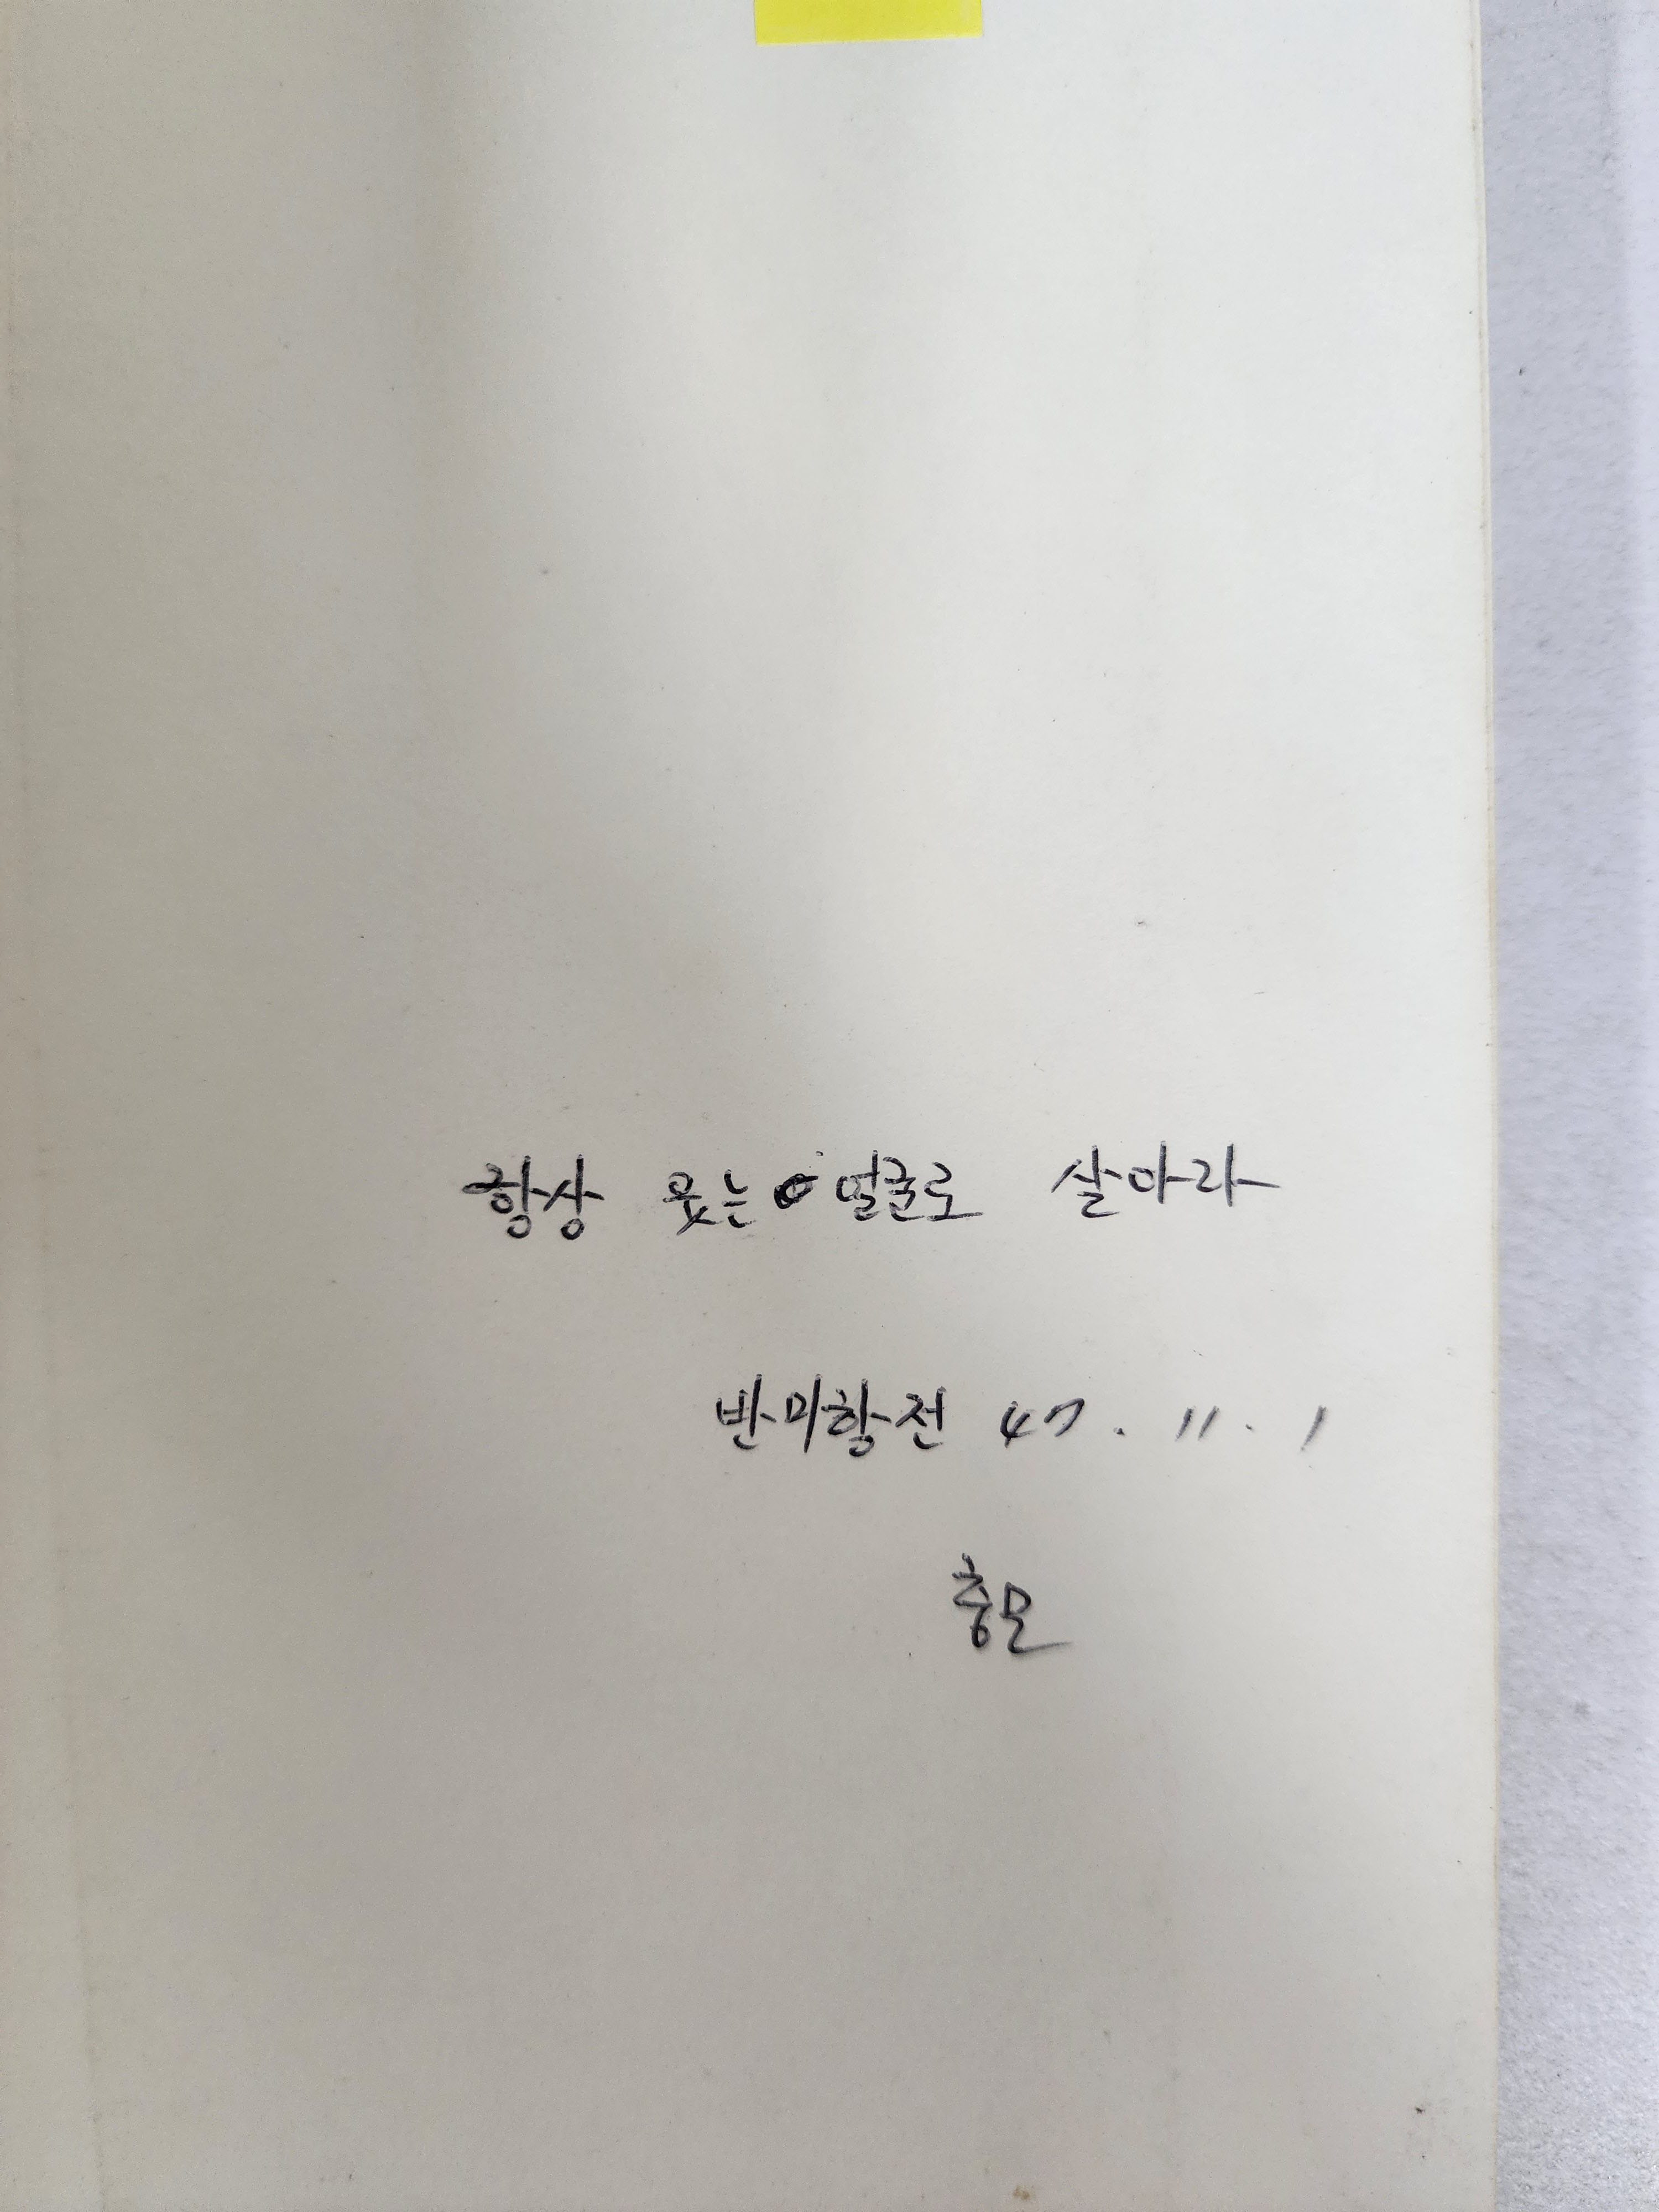 항상 웃는 얼굴로 살아라
반미항전 47. 11. 1
충모